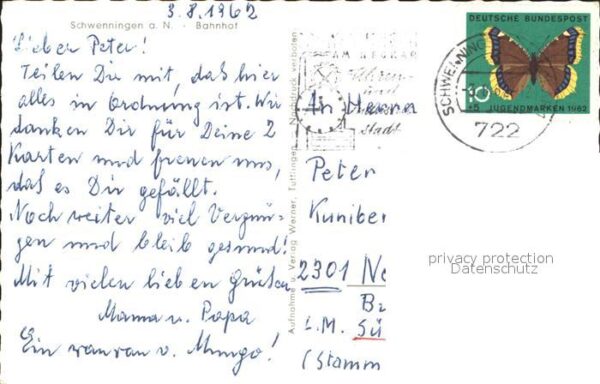 3.8.1962
Schwenningen a. N. - Bahnhof
Lieber Peter!
Teilen Dir mit, daß hier
alles in Ordnung ist. Wir
danken Dir für Deine 2
Karten und freuen uns,
daß es Dir gefällt.
Noch weiter viel Vergnü-
gen und bleib gesund!
Mit vielen lieben Grüßen
Mama u. Papa
Ein wauwau v. Mungo!
Aufnahme u. Verlag Werner, Tuttlingen - Nachdruck verboten
AM NECKAR
Uhren-
und
stadt
SCHWENNING
722
DEUTSCHE BUNDESPOST
10
+5 JUGENDMARKEN 1962
An Herrn
Peter
Kuniber
2301 Ne
i.M. Sü
(Stamm
privacy protection
Datenschutz